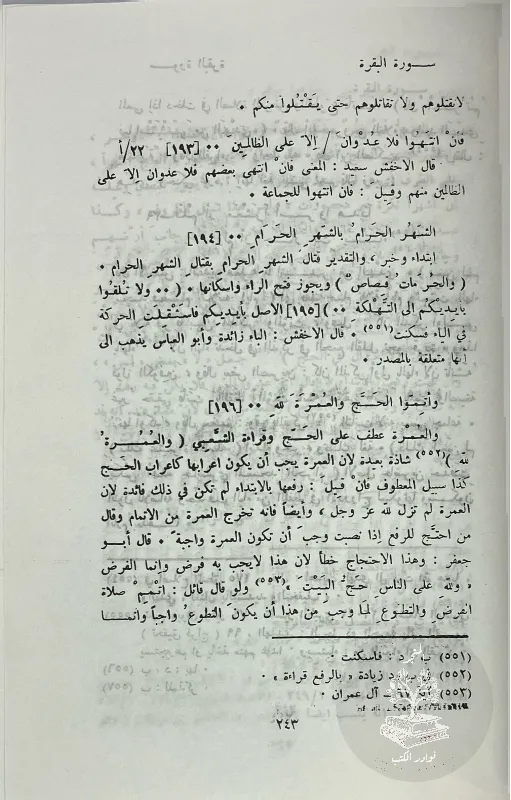 ســورة البقرة
لاتقتلوهم ولا تقاتلوهم حتى يَقْتُلوا منكم ٠
فَانْ انتَهَوا فلا عُدْوَانَ / اِلاّ على الظالمينَ ٠٠ [١٩٣] ٢٢/أ
قال الاخفش سعيد : المعنى فانْ انتهى بعضهم فلا عدوان اِلاّ على
الظالمين منهم وقِيلَ : فان انتهوا للجماعة ٠
الشهْرُ الحَرامُ بالشَهرِ الحَرَامِ ٠٠ [١٩٤]
ابتداء وخبر ، والتقدير قتالُ الشهرِ الحرامِ بقتالِ الشهرِ الحرام ٠
( والحُرُماتُ قِصاصٌ ) ويجوز فتح الراء واسكانها ٠ ( ٠٠ ولا تلقوا
بأيديكُم الى التَّهْلكة ٠٠ ) [١٩٥] الاصل بأيديكم فاستثقلت الحركة
في الياء فسكنت(٥٥١) ٠ قال الاخفش : الباء زائدة وأبو العباس يذهب الى
إنها متعلقة بالمصدر ٠
وأتِمّوا الحَجَ والعُمْرَةَ للهِ ٠٠ [١٩٦]
والعُمْرة عطف على الحَج وقراءة الشَعبِي ( والعُمْرةُ
للهِ )(٥٥٢) شاذة بعيدة لان العمرة يجب أن يكون اعرابها كاعراب الحَج
كذا سبيل المعطوف فانْ قيلَ : رفعها بالابتداء لم تكن في ذلك فائدة لان
العمرة لم تزل لله عز وجل ، وأيضاً فانه تخرج العمرة من الاتمام وقال
من احتَج للرفع اذا نصبت وجبَ أن تكون العمرة واجبة ٠ قال أبو
جعفر : وهذا الاحتجاج خطأ لان هذا لايجب به فرض وانما الفرض
« وللهِ على الناسِ حَجُّ البَيْتِ »(٥٥٣) ولو قال قائل : اتمِمْ صلاة
الفرضِ والتطوعِ لما وجب من هذا أن يكونَ التطوعُ واجباً وانما
(٥٥١) ب، د : فاسكنت ٠
(٥٥٢) في ب، د زيادة « بالرفع قراءة » ٠
(٥٥٣) آل عمران ٠
٢٤٣
نوادر الكتب